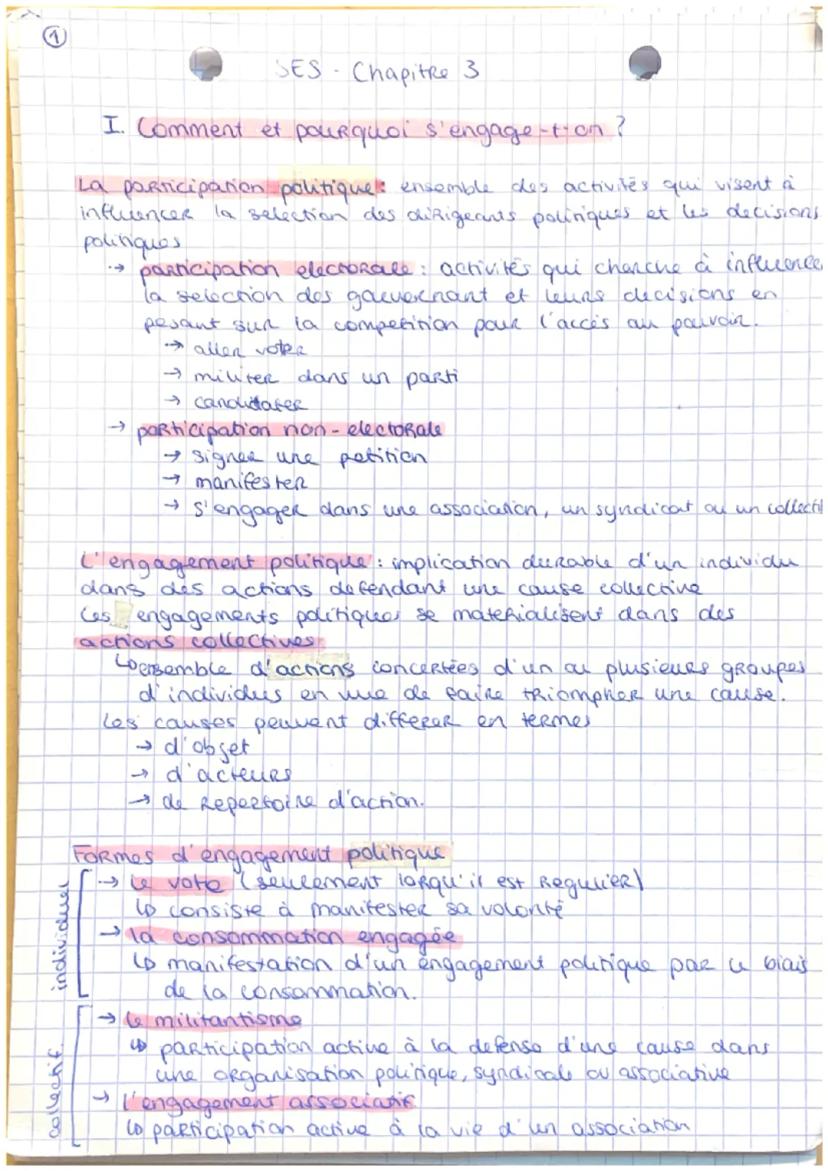 1
SES - Chapitre 3
I. Comment et pourquoi s'engage-t-on ?
La participation politique : ensemble des activités qui visent à
influencer la selection des dirigeants politiques et les decisions
politiques
→ participation electorale : activités qui cherche à influencer
la selection des gouvernant et leurs decisions en
pesant sur la competition pour l'accès au pouvoir.
→ aller voter
→ militer dans un parti
→ candidater
→ participation non-electorale
→ signer une petition
→ manifester
→ s'engager dans une association, un syndicat ou un collectif
L'engagement politique : implication durable d'un individu
dans des actions defendant une cause collective
Ces engagements politiques se materialisent dans des
actions collectives
↳ ensemble d'actions concertées d'un ou plusieurs groupes
d'individus en vue de faire triompher une cause.
Les causes peuvent differer en termes
→ d'objet
→ d'acteurs
→ de repertoire d'action.
Formes d'engagement politique
individuel
→ le vote (seulement lorsqu'il est regulier)
↳ consiste à manifester sa volonté
→ la consommation engagée
↳ manifestation d'un engagement politique par le biais
de la consommation.
collectif
→ le militantisme
↳ participation active à la defense d'une cause dans
une organisation politique, syndicale ou associative
→ l'engagement associatif
↳ participation active à la vie d'un association